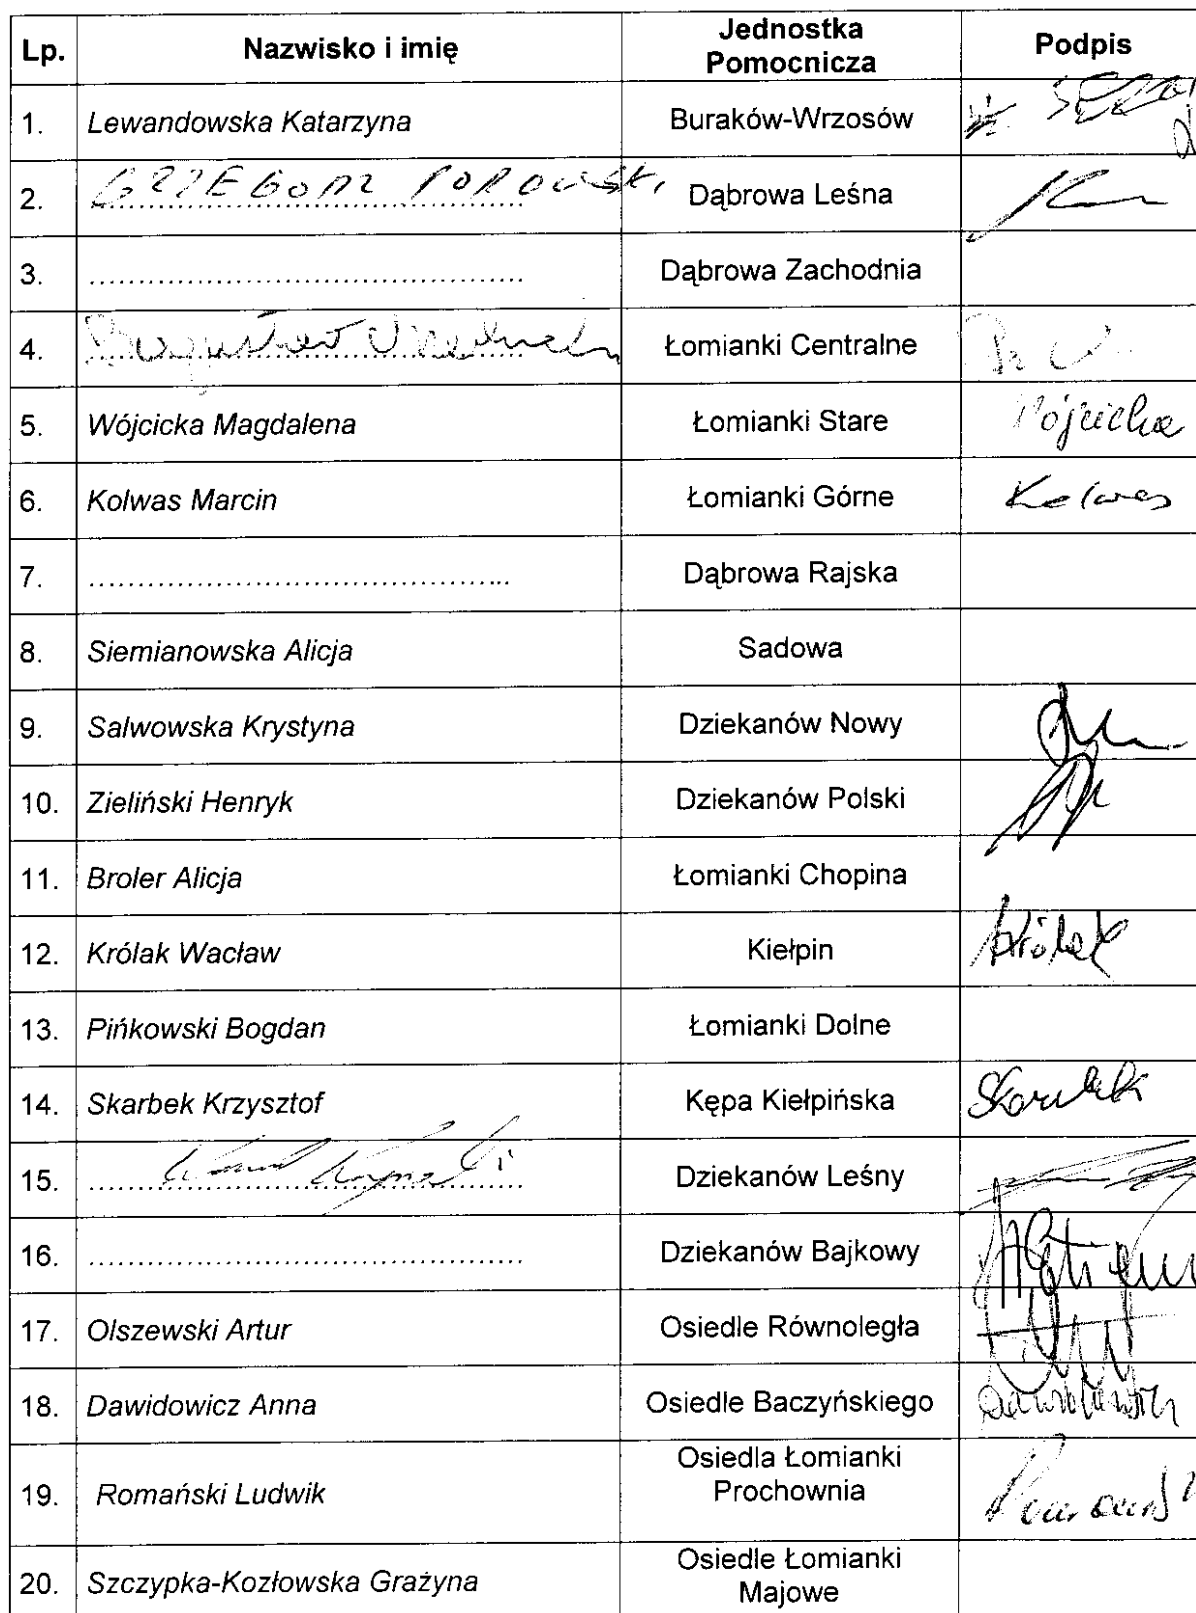 Lp. Nazwisko i imię Jednostka Pomocnicza Podpis
1. Lewandowska Katarzyna Buraków-Wrzosów
2. GRZEGORZ POROWSKI Dąbrowa Leśna
3. ............................................ Dąbrowa Zachodnia
4. Bogusław Łomianki Centralne
5. Wójcicka Magdalena Łomianki Stare Wójcicka
6. Kolwas Marcin Łomianki Górne Kolwas
7. ............................................ Dąbrowa Rajska
8. Siemianowska Alicja Sadowa
9. Salwowska Krystyna Dziekanów Nowy
10. Zieliński Henryk Dziekanów Polski
11. Broler Alicja Łomianki Chopina
12. Królak Wacław Kiełpin Królak
13. Pińkowski Bogdan Łomianki Dolne
14. Skarbek Krzysztof Kępa Kiełpińska Skarbek
15. Dziekanów Leśny
16. ............................................ Dziekanów Bajkowy
17. Olszewski Artur Osiedle Równoległa
18. Dawidowicz Anna Osiedle Baczyńskiego Dawidowicz
19. Romański Ludwik Osiedla Łomianki Prochownia Romański
20. Szczypka-Kozłowska Grażyna Osiedle Łomianki Majowe